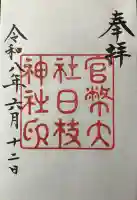 奉拝
官幣大
社日枝
神社印
令和八年六月十二日